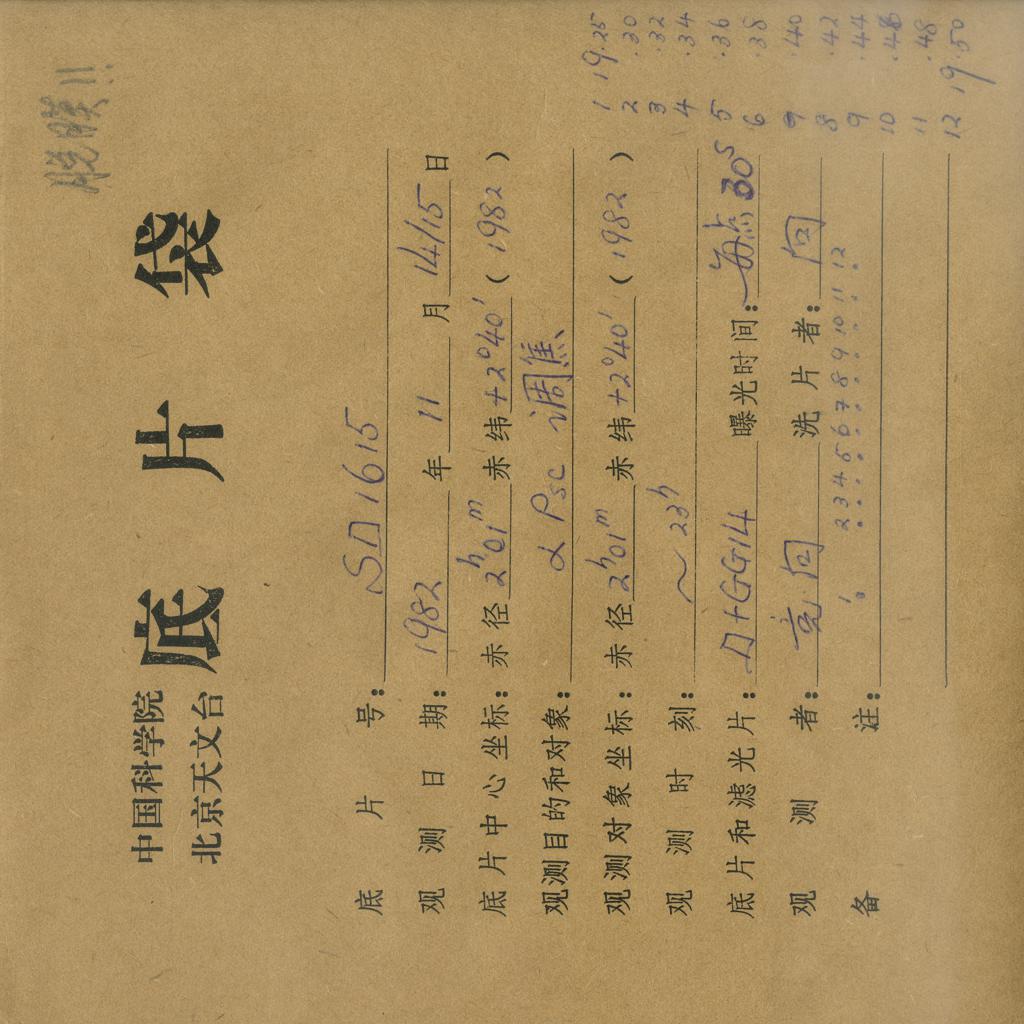 脱膜!!
中国科学院
北京天文台
底片袋
底片号: SΠ1615
观测日期: 1982年11月14/15日
底片中心坐标: 赤径2h01m赤纬+2°40′(1982)
观测目的和对象: α Psc 调焦
观测对象坐标: 赤径2h01m赤纬+2°40′(1982)
观测时刻: ~23h
底片和滤光片: Π+GG14 曝光时间: 每点30s
观测者: 竞 向 洗片者: 向
备注: 1 2 3 4 5 6 7 8 9 10 11 12
1 19.25
2 .30
3 .32
4 .34
5 .36
6 .38
7 .40
8 .42
9 .44
10 .46
11 .48
12 19.50